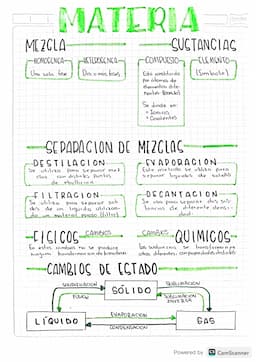 MATERIA
MEZCLA
SUSTANCIAS
HOMOGENEA
Una sola fase
HETEROGENEA
Dos o más fases
COMPUESTO
Está constituido
por átomos de
elementos dife-
rentes
Se divide en:
• Iónicos
• Covalentes
ELEMENTO
(Símbolo)
SEPARACION DE MEZCLAS
DESTILACION
Se utiliza para separar mez
clas con distintos puntos
de ebullición
EVAPORACION
Este método se utiliza para
separar líquidos de sólidos
FILTRACION
Se usa para separar soli-
dos de un líquido utilizan-
do un material poroso (filtro)
DECANTACION
Se usa para separar dos sus-
tancias de diferente densi-
dad
FISICOS
CAMBIOS
QUIMICOS
CAMBIOS
En estos cambios no se produce
ninguna transformación de la materia
Las sustancias se transforman en
otras diferentes, con propiedades distintas
CAMBIOS DE ESTADO
SOLIDIFICACION
FUSION
SÓLIDO
SUBLIMACION
SUBLIMACION
INVERSA
LÍQUIDO
EVAPORACION
CONDENSACION
GAS
Powered by CS CamScanner